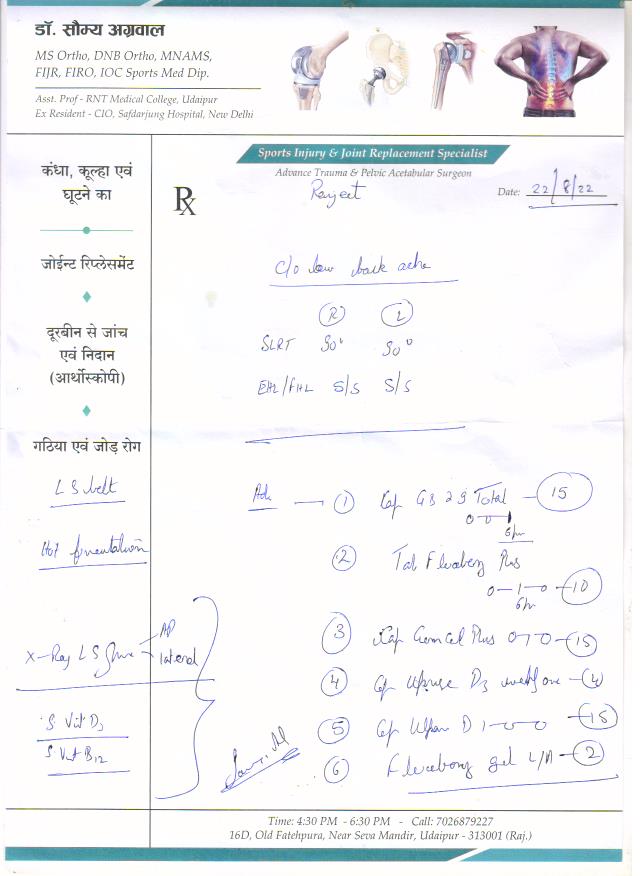 डॉ. सौम्य अग्रवाल
MS Ortho, DNB Ortho, MNAMS,
FIJR, FIRO, IOC Sports Med Dip.
Asst. Prof - RNT Medical College, Udaipur
Ex Resident - CIO, Safdarjung Hospital, New Delhi
Sports Injury & Joint Replacement Specialist
Advance Trauma & Pelvic Acetabular Surgeon
Rx
Ranjeet
Date: 22/8/22
कंधा, कूल्हा एवं
घूटने का
जोईन्ट रिप्लेसमेंट
दूरबीन से जांच
एवं निदान
(आर्थोस्कोपी)
गठिया एवं जोड़ रोग
C/o low back ache
R L
SLRT 90° 90°
EHL/FHL 5/5 5/5
LS belt
Hot fomentation
X-Ray LS Spine AP
lateral
S Vit D3
S Vit B12
Adv
1 Cap GB 29 Total 15
0-0-1
2 Tab Plus
0-1-0 10
3 Cap Plus 0-1-0 15
4 Cap D3 4
5 Cap D 1-0-0 15
6 gel L/A 2
Time: 4:30 PM - 6:30 PM - Call: 7026879227
16D, Old Fatehpura, Near Seva Mandir, Udaipur - 313001 (Raj.)